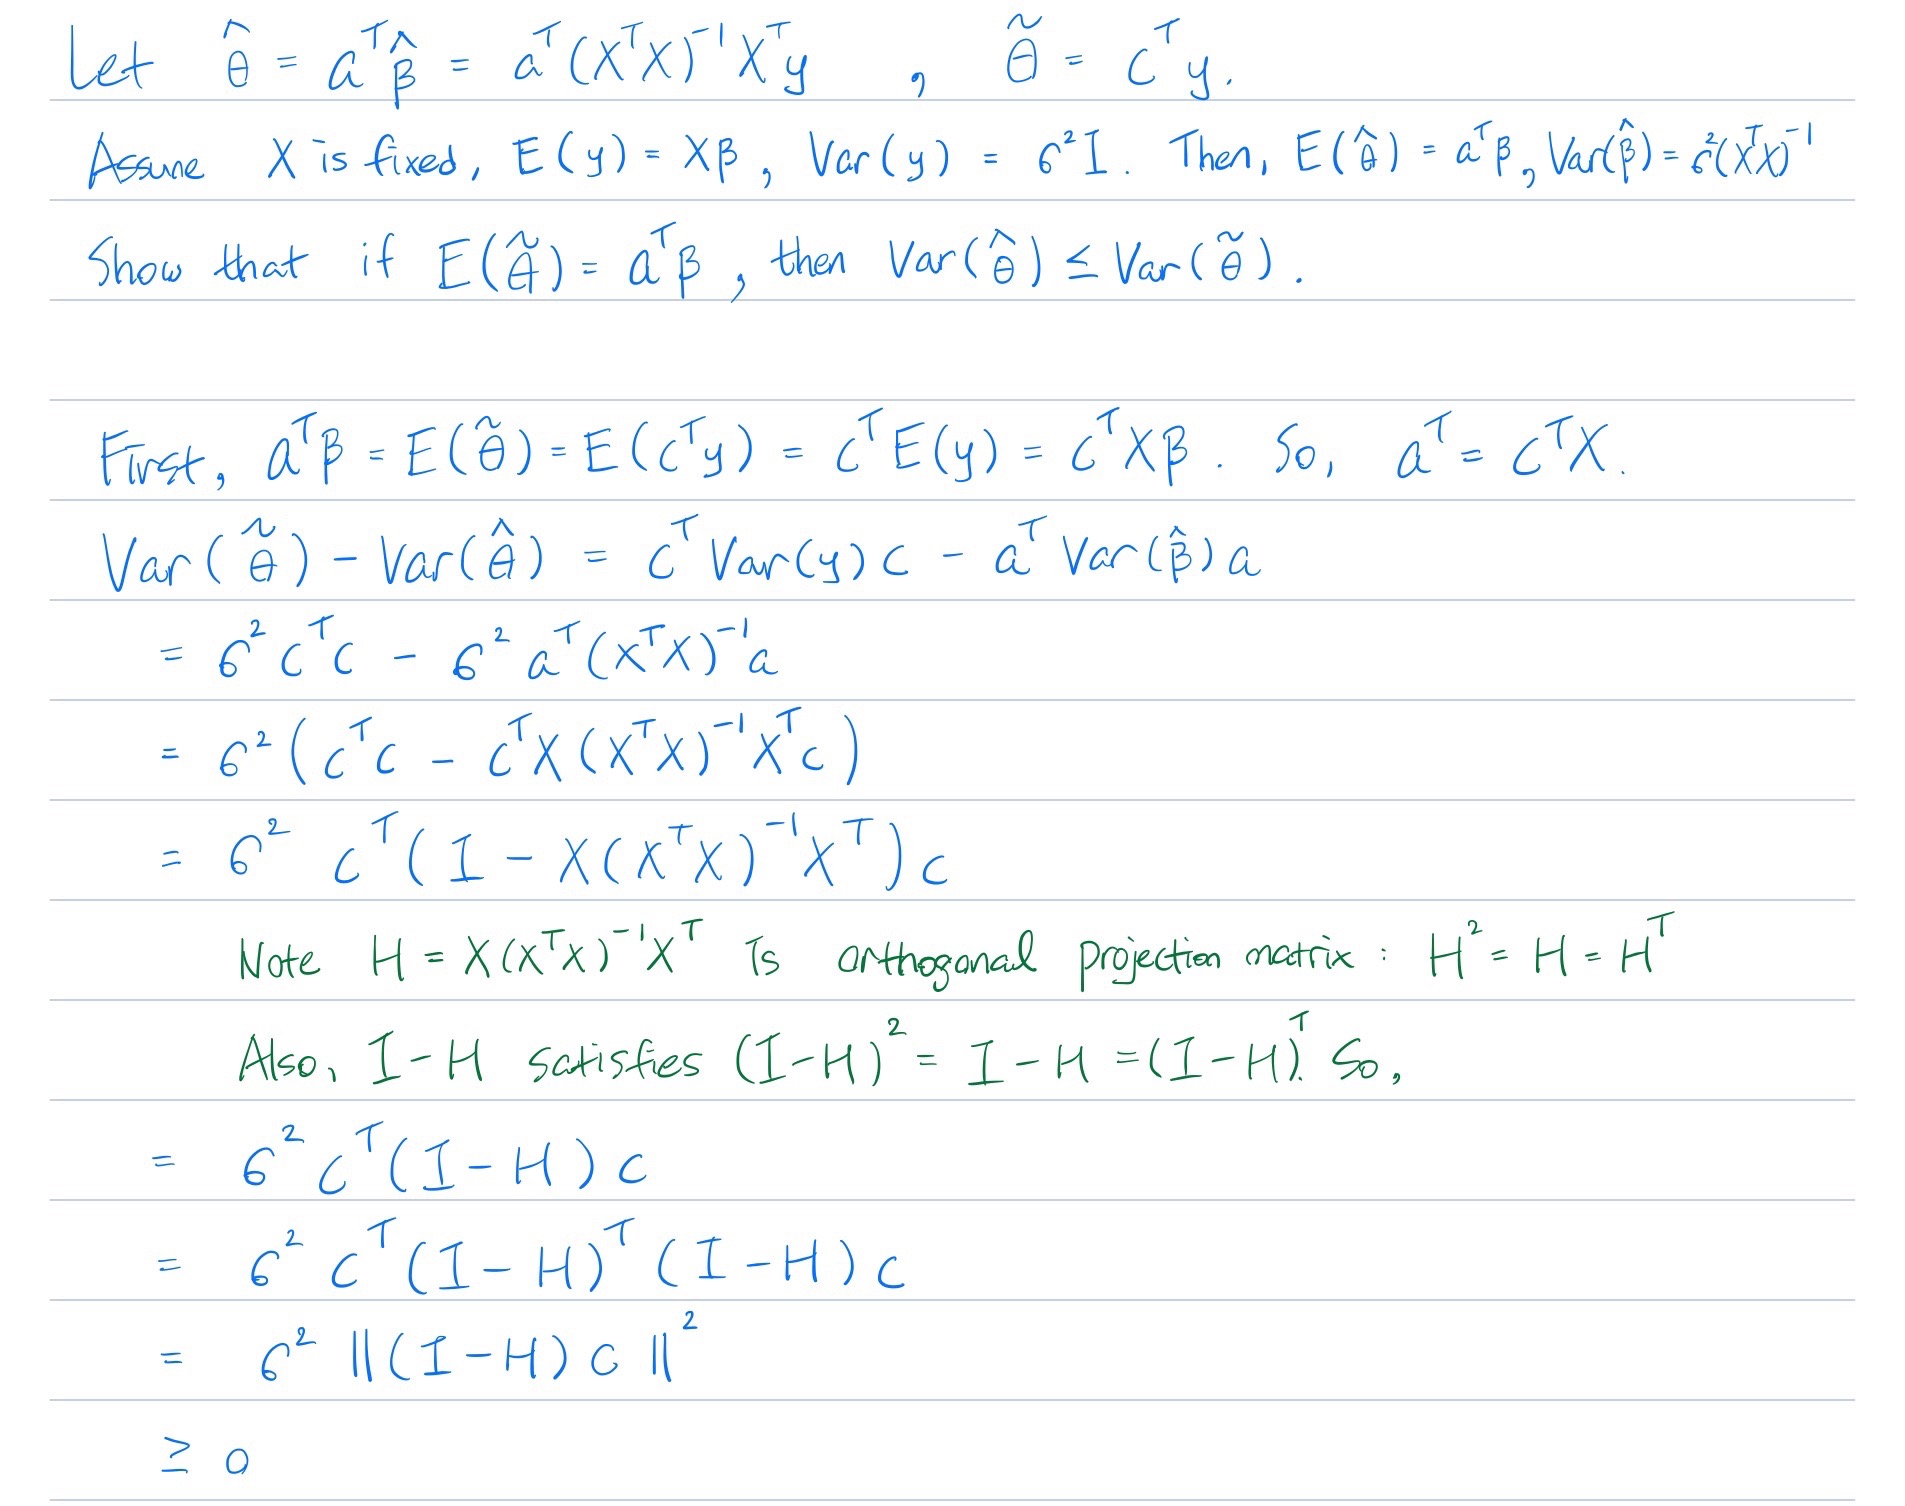 Let θ̂ = aᵀβ̂ = aᵀ(XᵀX)⁻¹Xᵀy , θ̃ = cᵀy.
Assume X is fixed, E(y) = Xβ, Var(y) = σ²I. Then, E(θ̂) = aᵀβ, Var(β̂) = σ²(XᵀX)⁻¹
Show that if E(θ̃) = aᵀβ, then Var(θ̂) ≤ Var(θ̃).
First, aᵀβ = E(θ̃) = E(cᵀy) = cᵀE(y) = cᵀXβ. So, aᵀ = cᵀX.
Var(θ̃) - Var(θ̂) = cᵀVar(y)c - aᵀVar(β̂)a
= σ²cᵀc - σ²aᵀ(XᵀX)⁻¹a
= σ²(cᵀc - cᵀX(XᵀX)⁻¹Xᵀc)
= σ² cᵀ(I - X(XᵀX)⁻¹Xᵀ)c
Note H = X(XᵀX)⁻¹Xᵀ is orthogonal projection matrix : H² = H = Hᵀ
Also, I-H satisfies (I-H)² = I-H = (I-H)ᵀ. So,
= σ²cᵀ(I-H)c
= σ²cᵀ(I-H)ᵀ(I-H)c
= σ²||(I-H)c||²
≥ 0